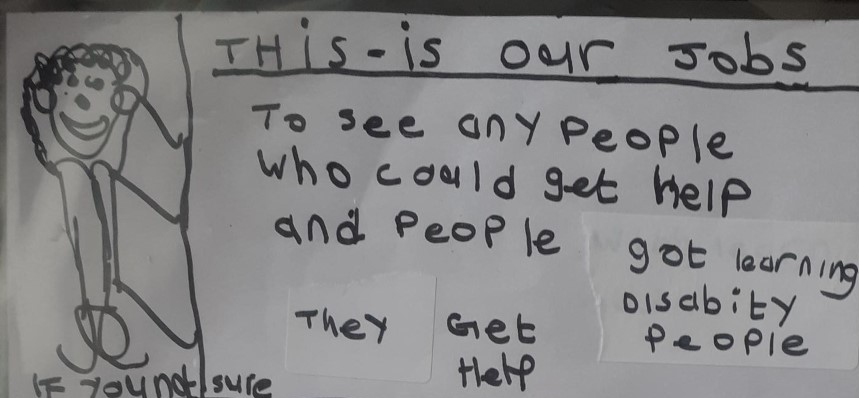 THis-is our Jobs
To see any People
who could get HelP
and PeoPle
got learning
DisabitY
PeoPle
They Get
HelP
IF you not sure